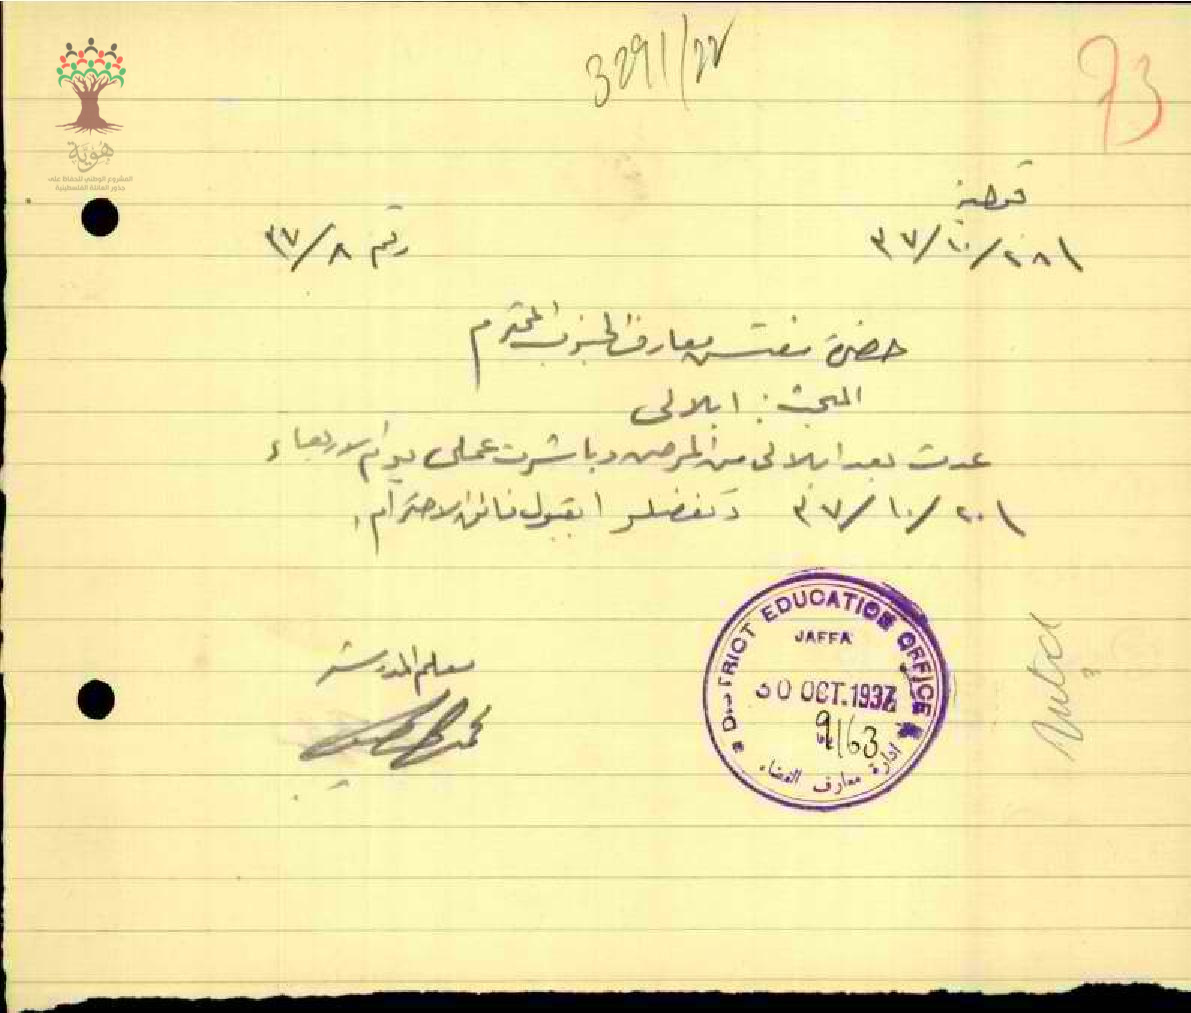 3291/22
73
هوية
المشروع الوطني للحفاظ على
جذور العائلة الفلسطينية
٢٨/١٠/٣٧
رقم ٨/٣٧
حضرة مفتش معارف الجنوب المحترم
المبحث: ابلالي
عدت بعد ابلالي من المرض وباشرت عملي يوم الاربعاء
٢٠/١٠/٣٧ وتفضلوا بقبول فائق الاحترام
معلم المدرسة
DISTRICT EDUCATION OFFICE
JAFFA
30 OCT. 1937
9/63
ادارة معارف القضاء
Noted